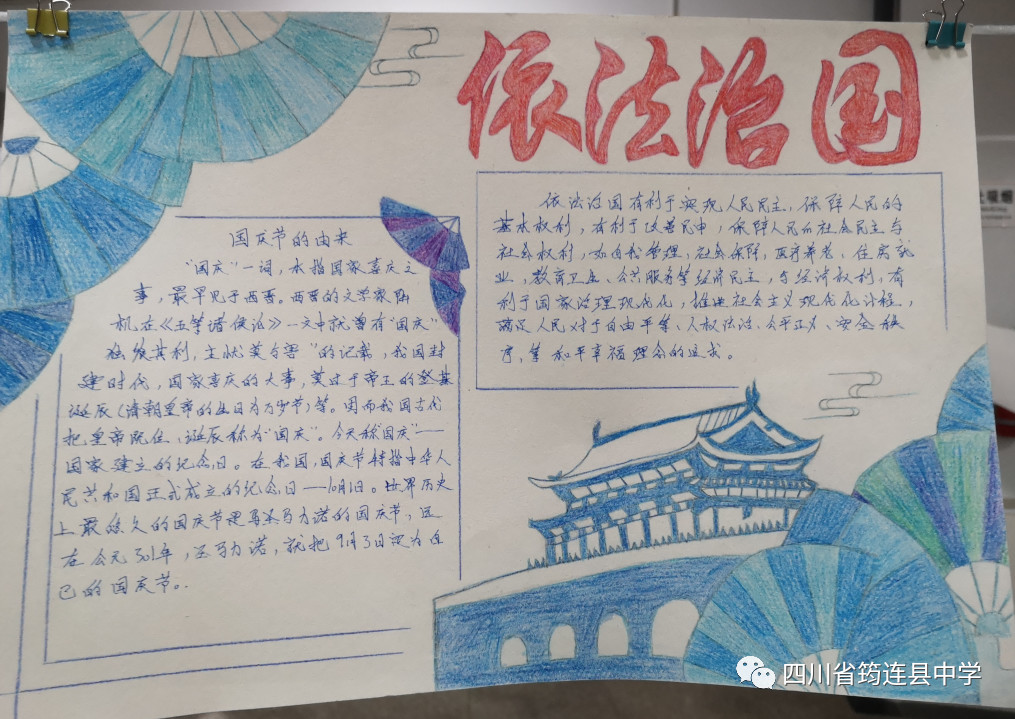 依法治国
国庆节的由来
“国庆”一词，本指国家喜庆之
事，最早见于西晋。西晋的文学家陆
机在《五等诸侯论》一文中就曾有“国庆
独飨其利，主忧莫与害”的记载，我国封
建时代，国家喜庆的大事，莫过于帝王的登基
诞辰（清朝皇帝的生日为万岁节）等。因而我国古代
把皇帝即位、诞辰称为“国庆”。今天称“国庆”——
国家建立的纪念日。在我国，国庆节特指中华人
民共和国正式成立的纪念日——10月1日。世界历史
上最悠久的国庆节是圣马力诺的国庆节，远
在公元301年，圣马力诺，就把9月3日定为自
己的国庆节。
依法治国有利于实现人民民主，保障人民的
基本权利，有利于改善民中，保障人民的社会民主与
社会权利，如自我管理，社会保障，医疗养老、住房就
业，教育卫生、公共服务等经济民主，与经济权利，有
利于国家治理现代化，推进社会主义现代化进程，
满足人民对于自由平等、人权法治、公平正义、安全秩
序，等和平幸福理念的追求。
四川省筠连县中学